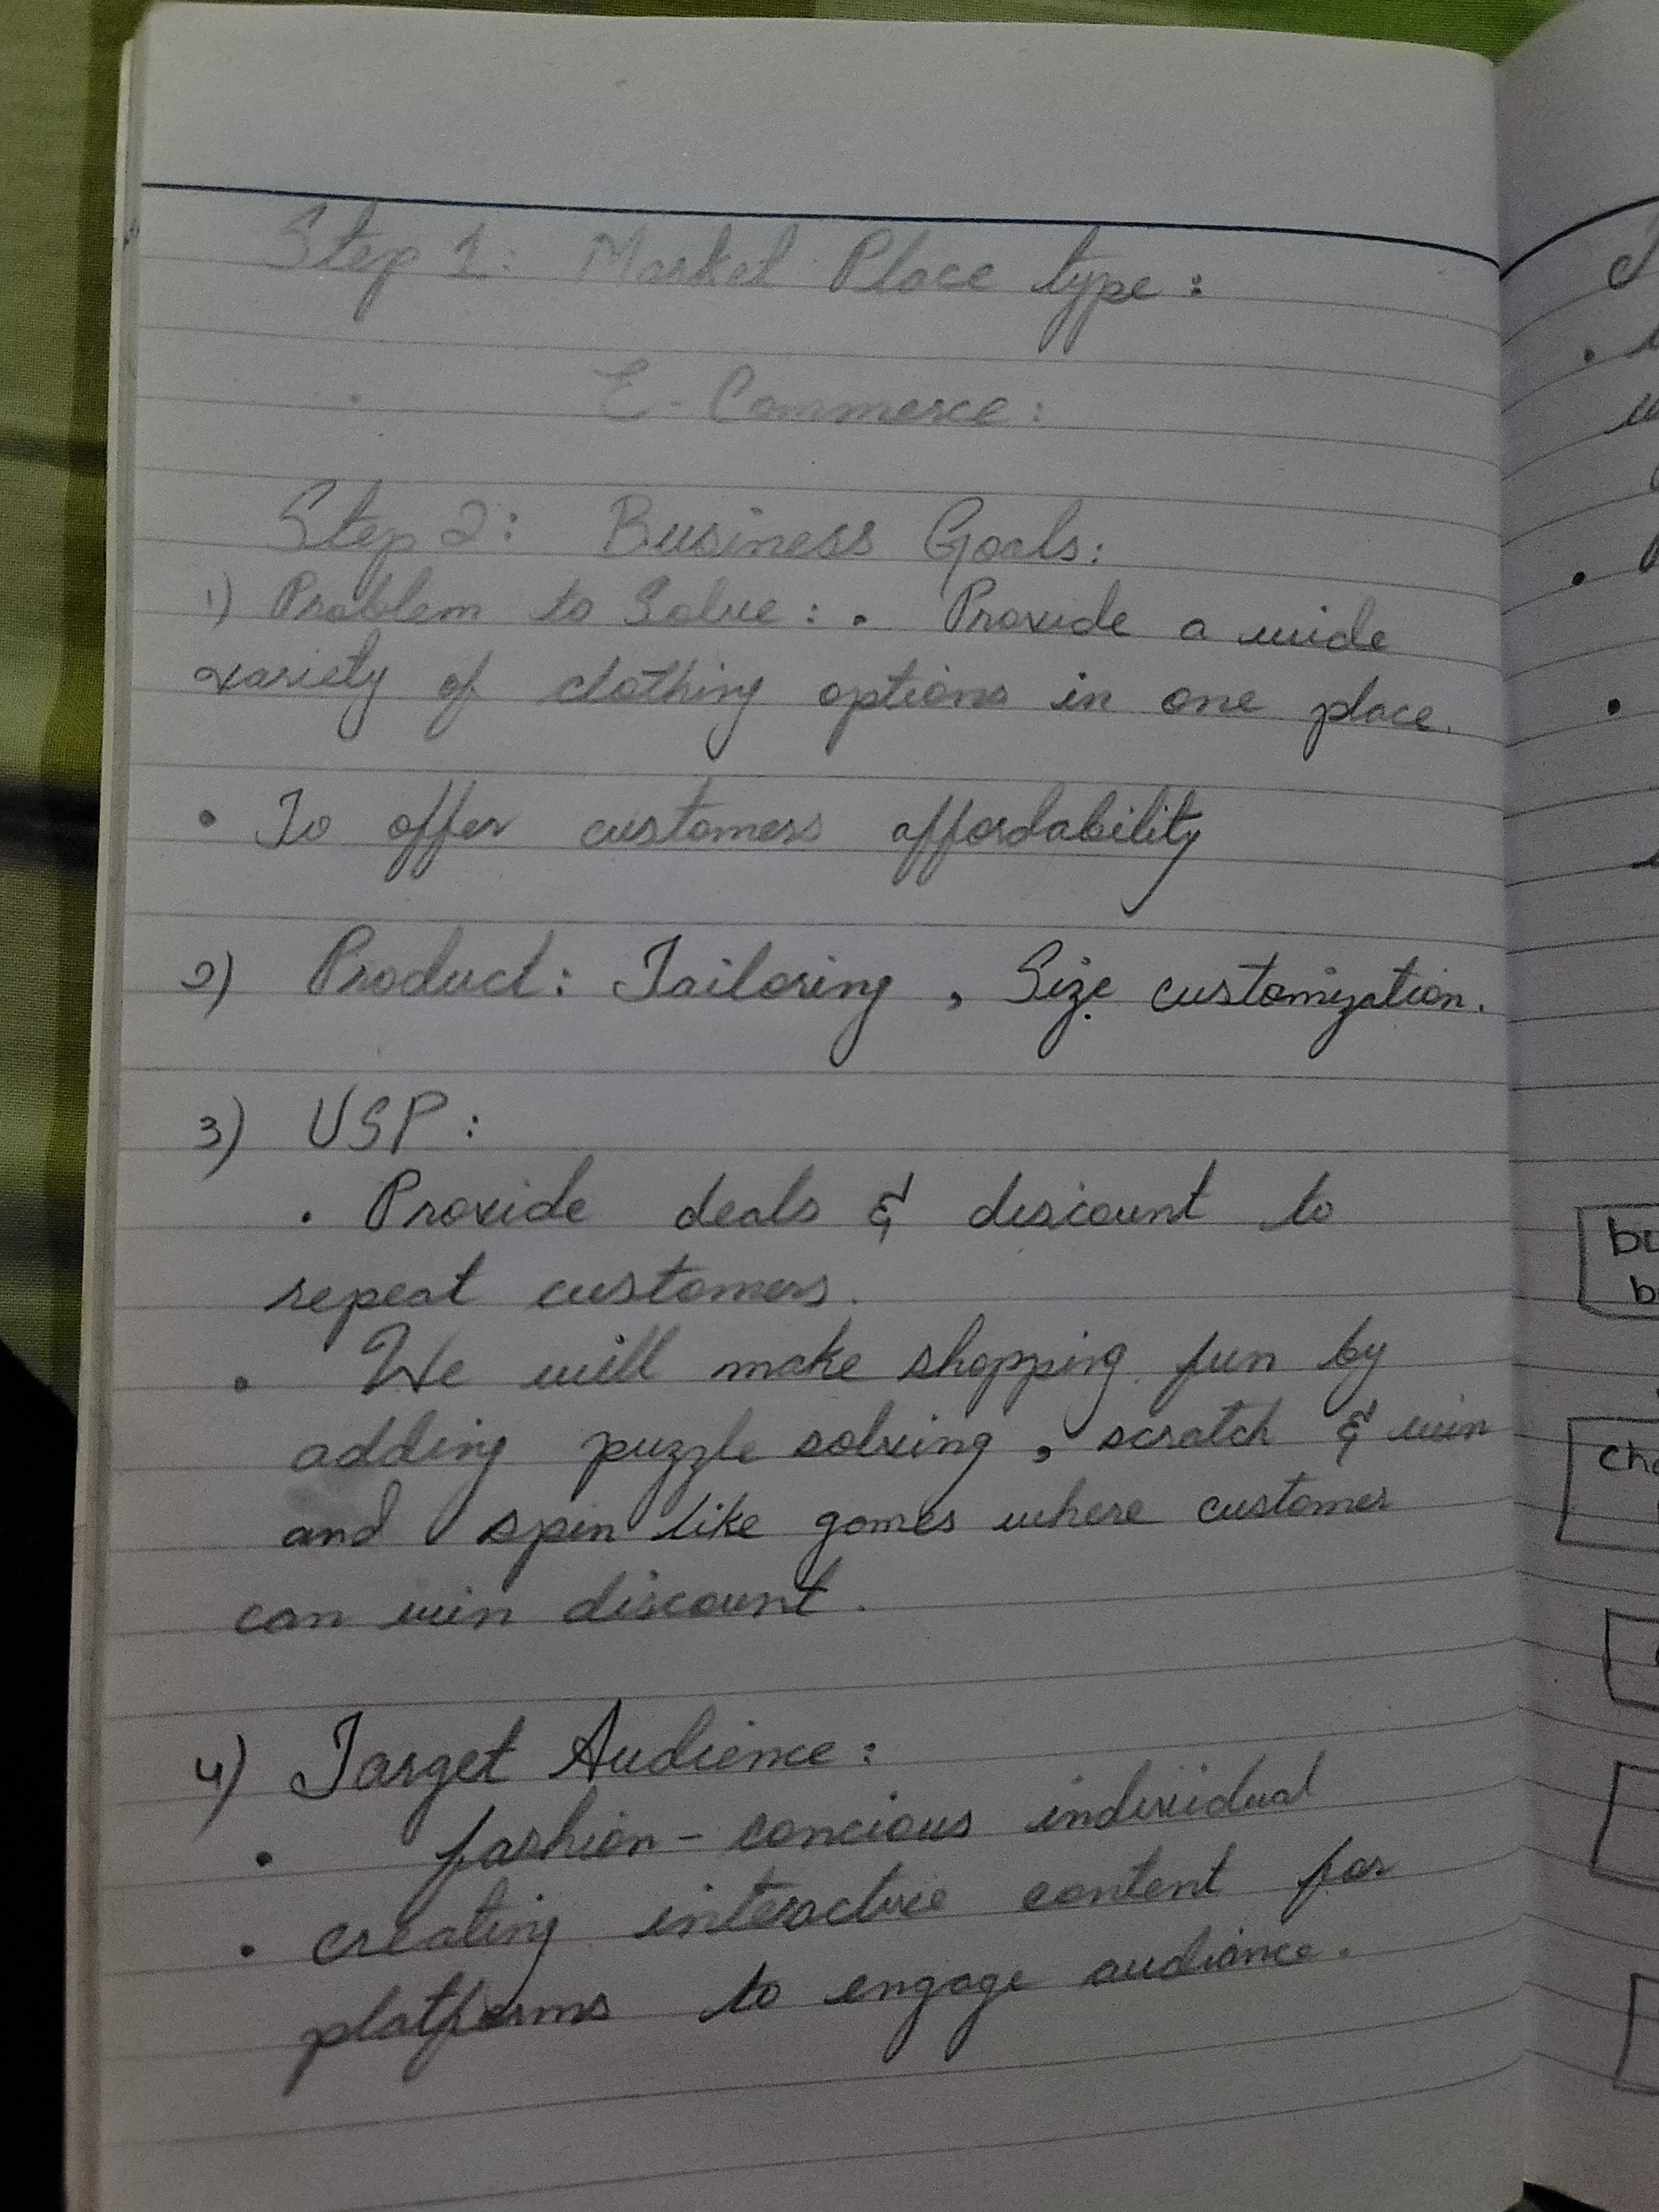 Step 1: Market Place type:
E-Commerce:
Step 2: Business Goals:
1) Problem to Solve: • Provide a wide
variety of clothing options in one place.
• To offer customers affordability
2) Product: Tailoring, Size customization.
3) USP:
• Provide deals & discount to
repeat customers.
• We will make shopping fun by
adding puzzle solving, scratch & win
and spin like games where customer
can win discount.
4) Target Audience:
• fashion-concious individual
• creating interactive content for
platforms to engage audiance.